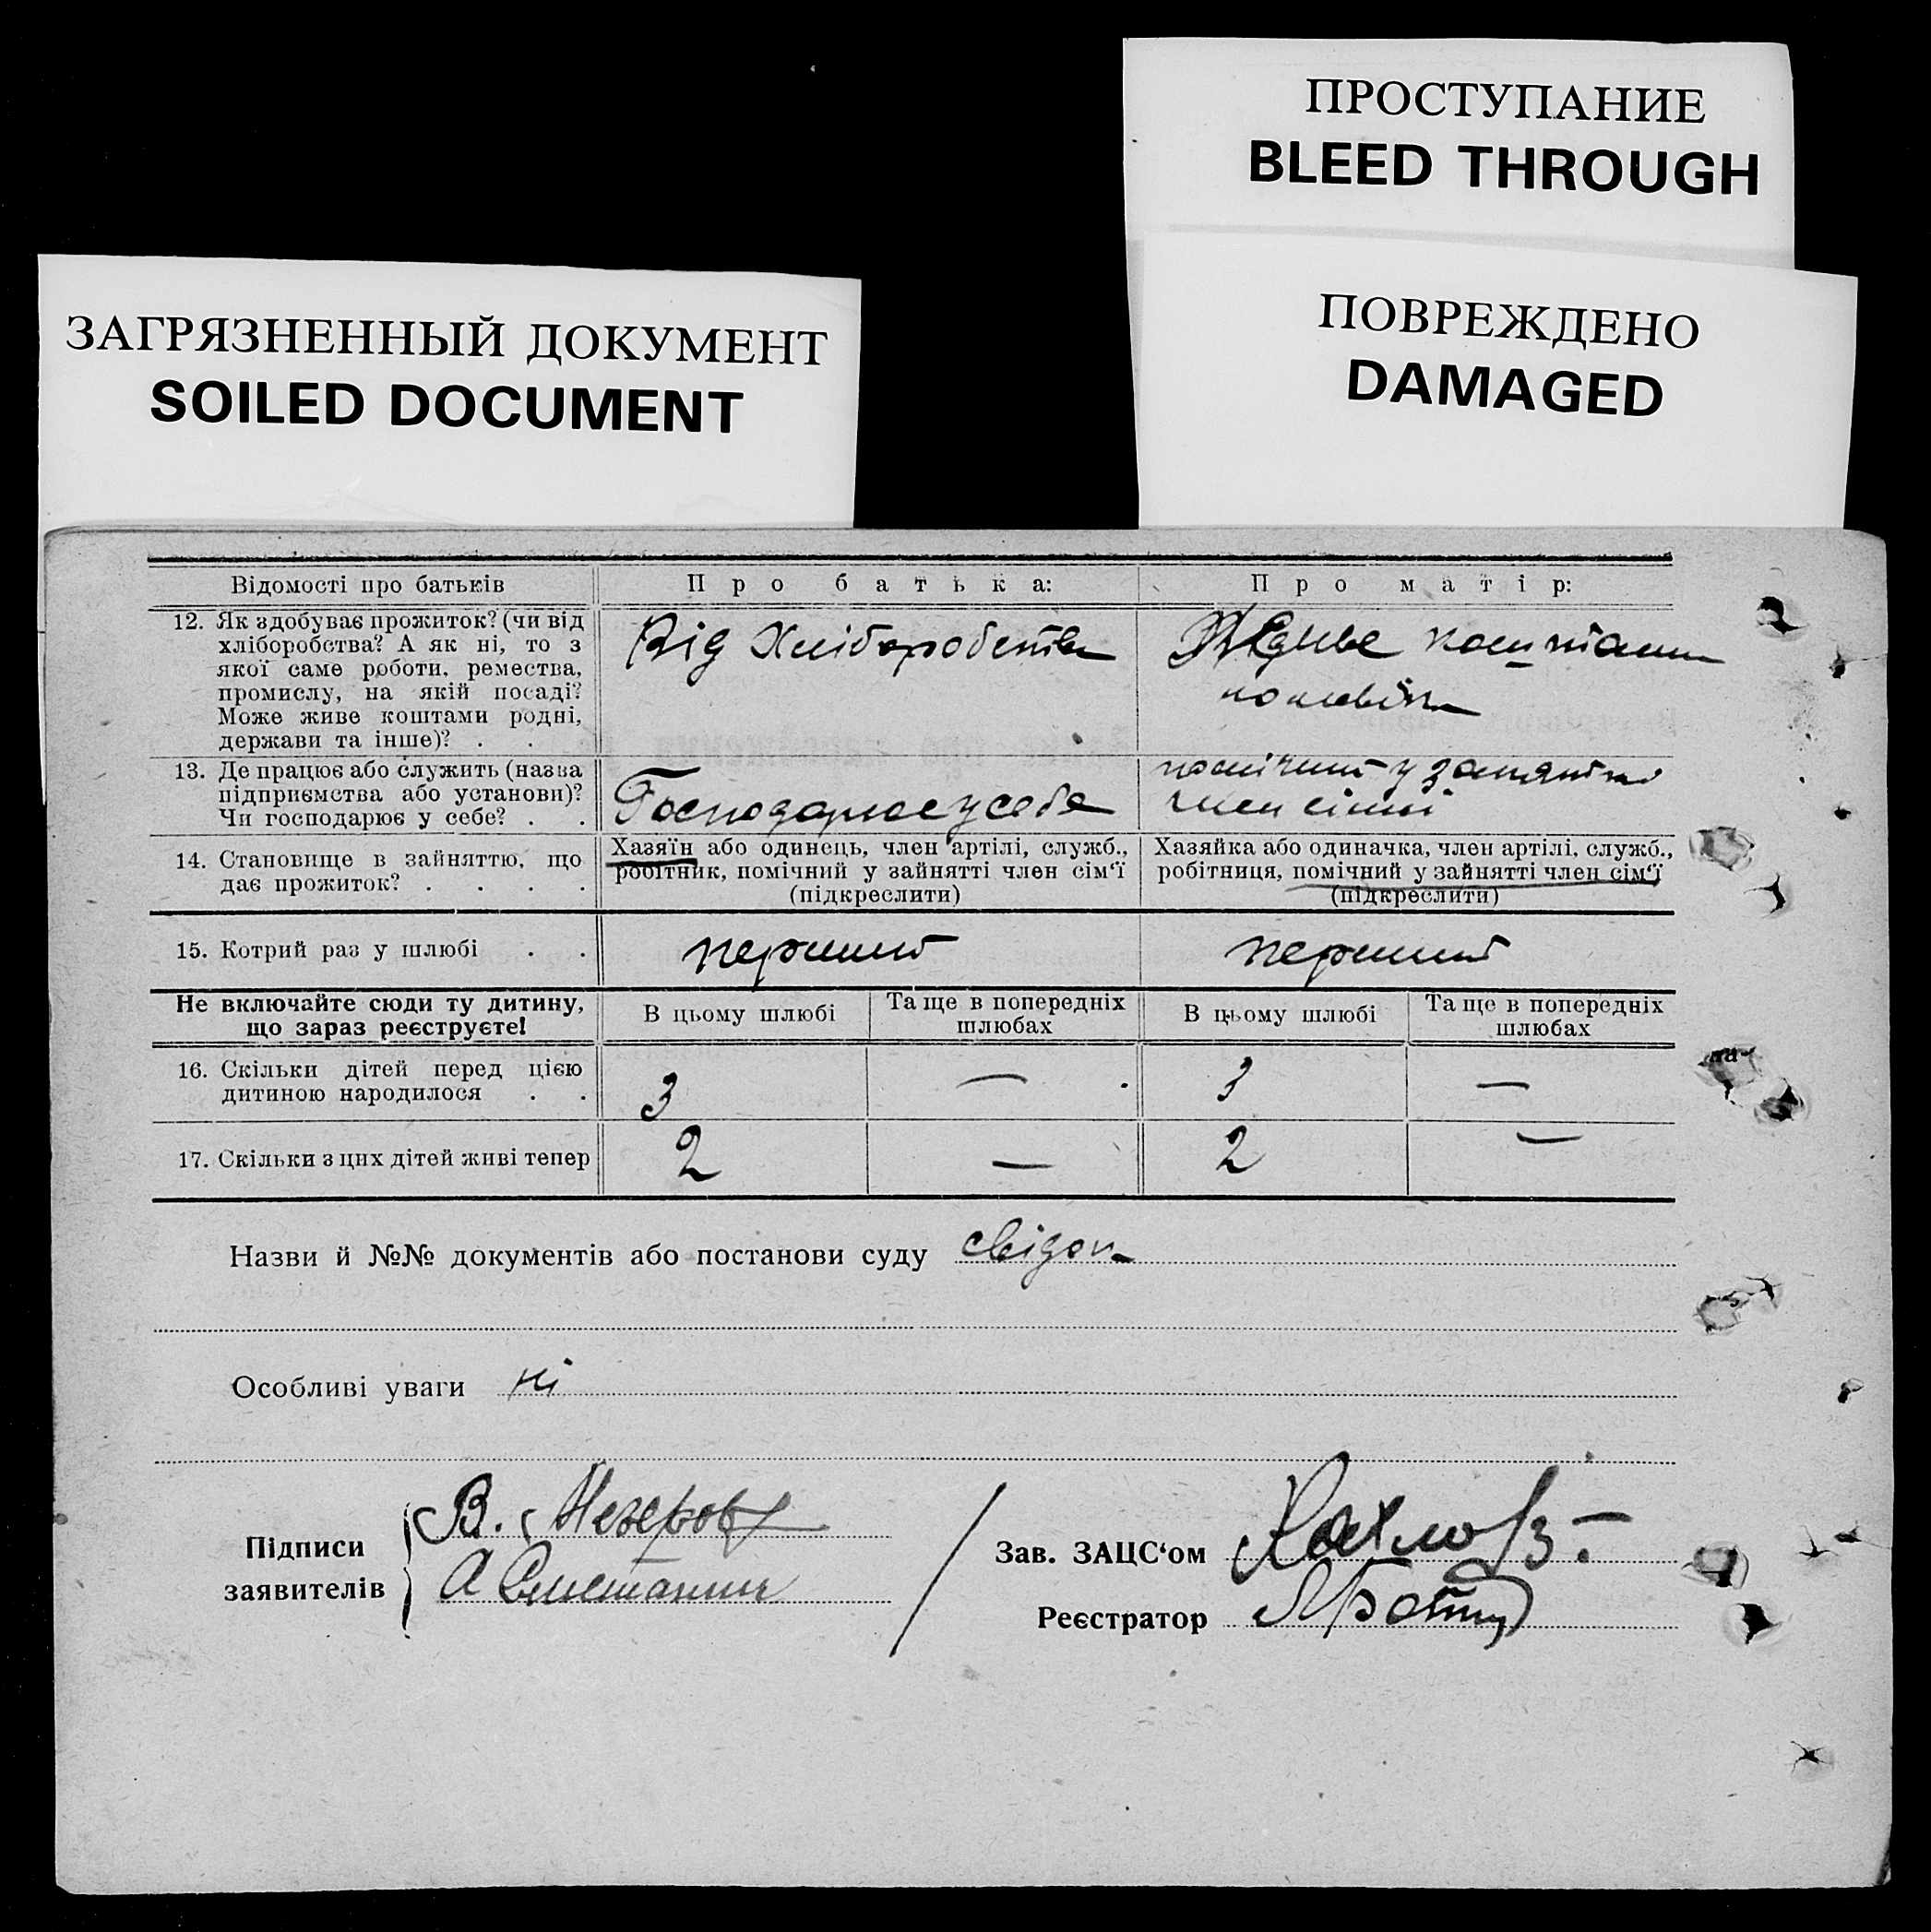 ПРОСТУПАНИЕ
BLEED THROUGH
ПОВРЕЖДЕНО
DAMAGED
ЗАГРЯЗНЕННЫЙ ДОКУМЕНТ
SOILED DOCUMENT
Відомості про батьків
Про батька:
Про матір:
12. Як здобуває прожиток? (чи від
хліборобства? А як ні, то з
якої саме роботи, ремества,
промислу, на якій посаді?
Може живе коштами родні,
держави та інше)? . .
Від Хліборобства
Живе коштами
чоловіка
13. Де працює або служить (назва
підприємства або установи)?
Чи господарює у себе? . .
Господарює у себе
помічний у занятті
член сімї
14. Становище в зайняттю, що
дає прожиток? . . . .
Хазяїн або одинець, член артілі, служб.,
робітник, помічний у зайнятті член сім‘ї
(підкреслити)
Хазяйка або одиначка, член артілі, служб.,
робітниця, помічний у зайнятті член сім‘ї
(підкреслити)
15. Котрий раз у шлюбі . .
перший
перший
Не включайте сюди ту дитину,
що зараз реєструєте!
В цьому шлюбі
Та ще в попередніх
шлюбах
В цьому шлюбі
Та ще в попередніх
шлюбах
16. Скільки дітей перед цією
дитиною народилося . .
3
—
3
—
17. Скільки з цих дітей живі тепер
2
—
2
—
Назви й №№ документів або постанови суду свідок
Особливі уваги ні
Підписи
заявителів
В.
А
Зав. ЗАЦС‘ом
Реєстратор